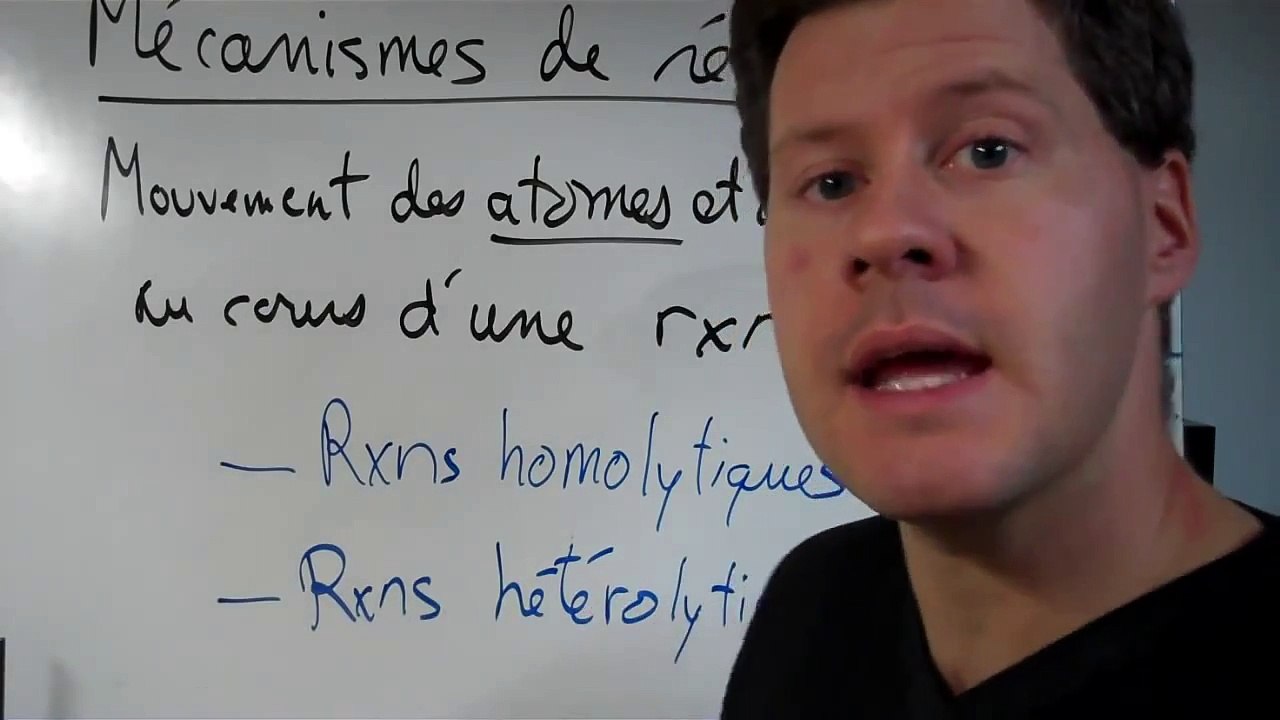 Mécanismes de ré
Mouvement des atomes et
au cours d'une rxn
— Rxns homolytiques
— Rxns hétérolyti